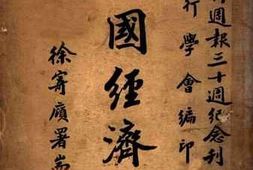 週報三十週紀念刊
行學會編印
國經濟
徐寄廎署